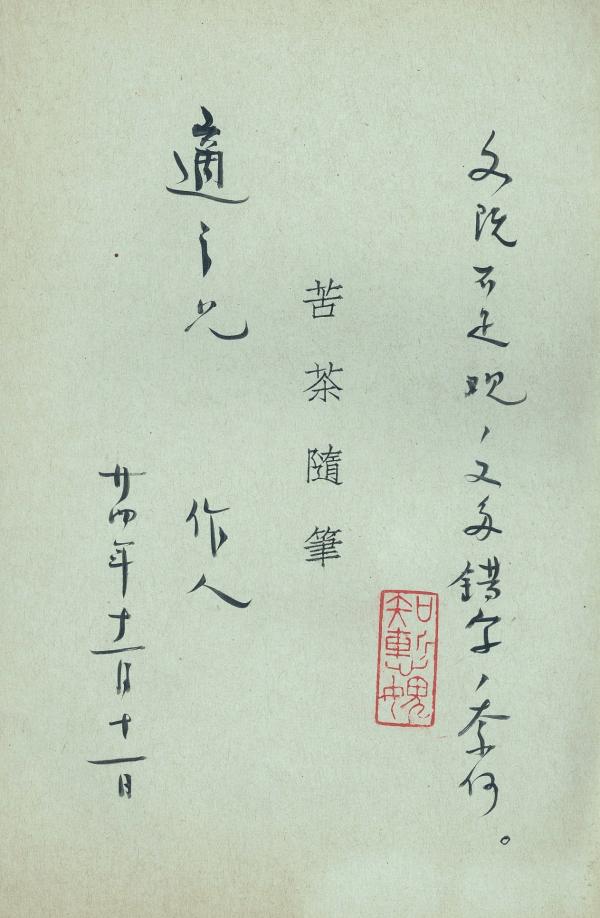 文既不足观，又多錯字，奈何。
知慙媿
苦茶隨筆
適之兄
作人
廿四年十一月十一日